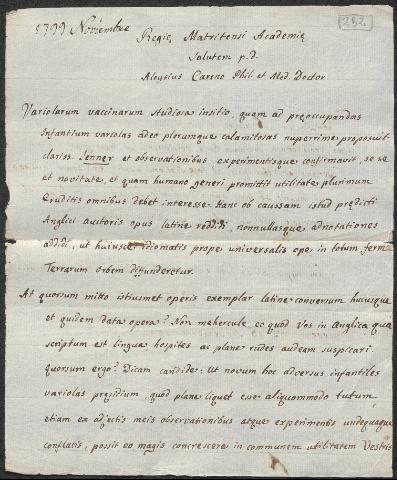 1799 Noviembre
252
Regię Matritensi Academię
Salutem p.d.
Aloysius Careno Phil. et Med. Doctor
Variolarum vaccinarum studiosa insitio, quam ad preoccupandas
Infantium variolas adeo plerumque calamitosas nuperrime proposuit
clariss. Jenner et observationibus experimentisque confirmavit, se se
et novitate, et quam humano generi promittit utilitate plurimum
Eruditis omnibus debet interesse. Hanc ob caussam istud prędicti
Anglici auctoris opus latine reddidi, nonnullasque adnotationes
addidi, ut huiusce idiomatis prope universalis ope in totum ferm
Terrarum orbem difunderetur.
At quorsum mitto istiusmet operis exemplar latine conversum hucusque
et quidem data opera? Non mehercule eo quod Vos in Anglica qua
scriptum est lingua hospites ac plane rudes audeam suspicari.
quorsum ergo? Dicam candide. Ut novum hoc adversus infantiles
variolas pręsidium, quod plane liquet esse aliquommodo tutum,
etiam ex adjectis meis observationibus atque experimentis undequaque
conflatis, possit eo magis concrescere in communem utilitatem Vestris